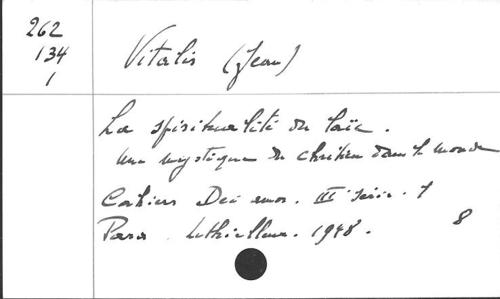 262
134
1
Vitalis (Jean)
La spiritualité du laïc.
Une mystique du chrétien dans le monde
Cahiers Dei amor. III série. 1
Paris. Lethielleux. 1948.
8